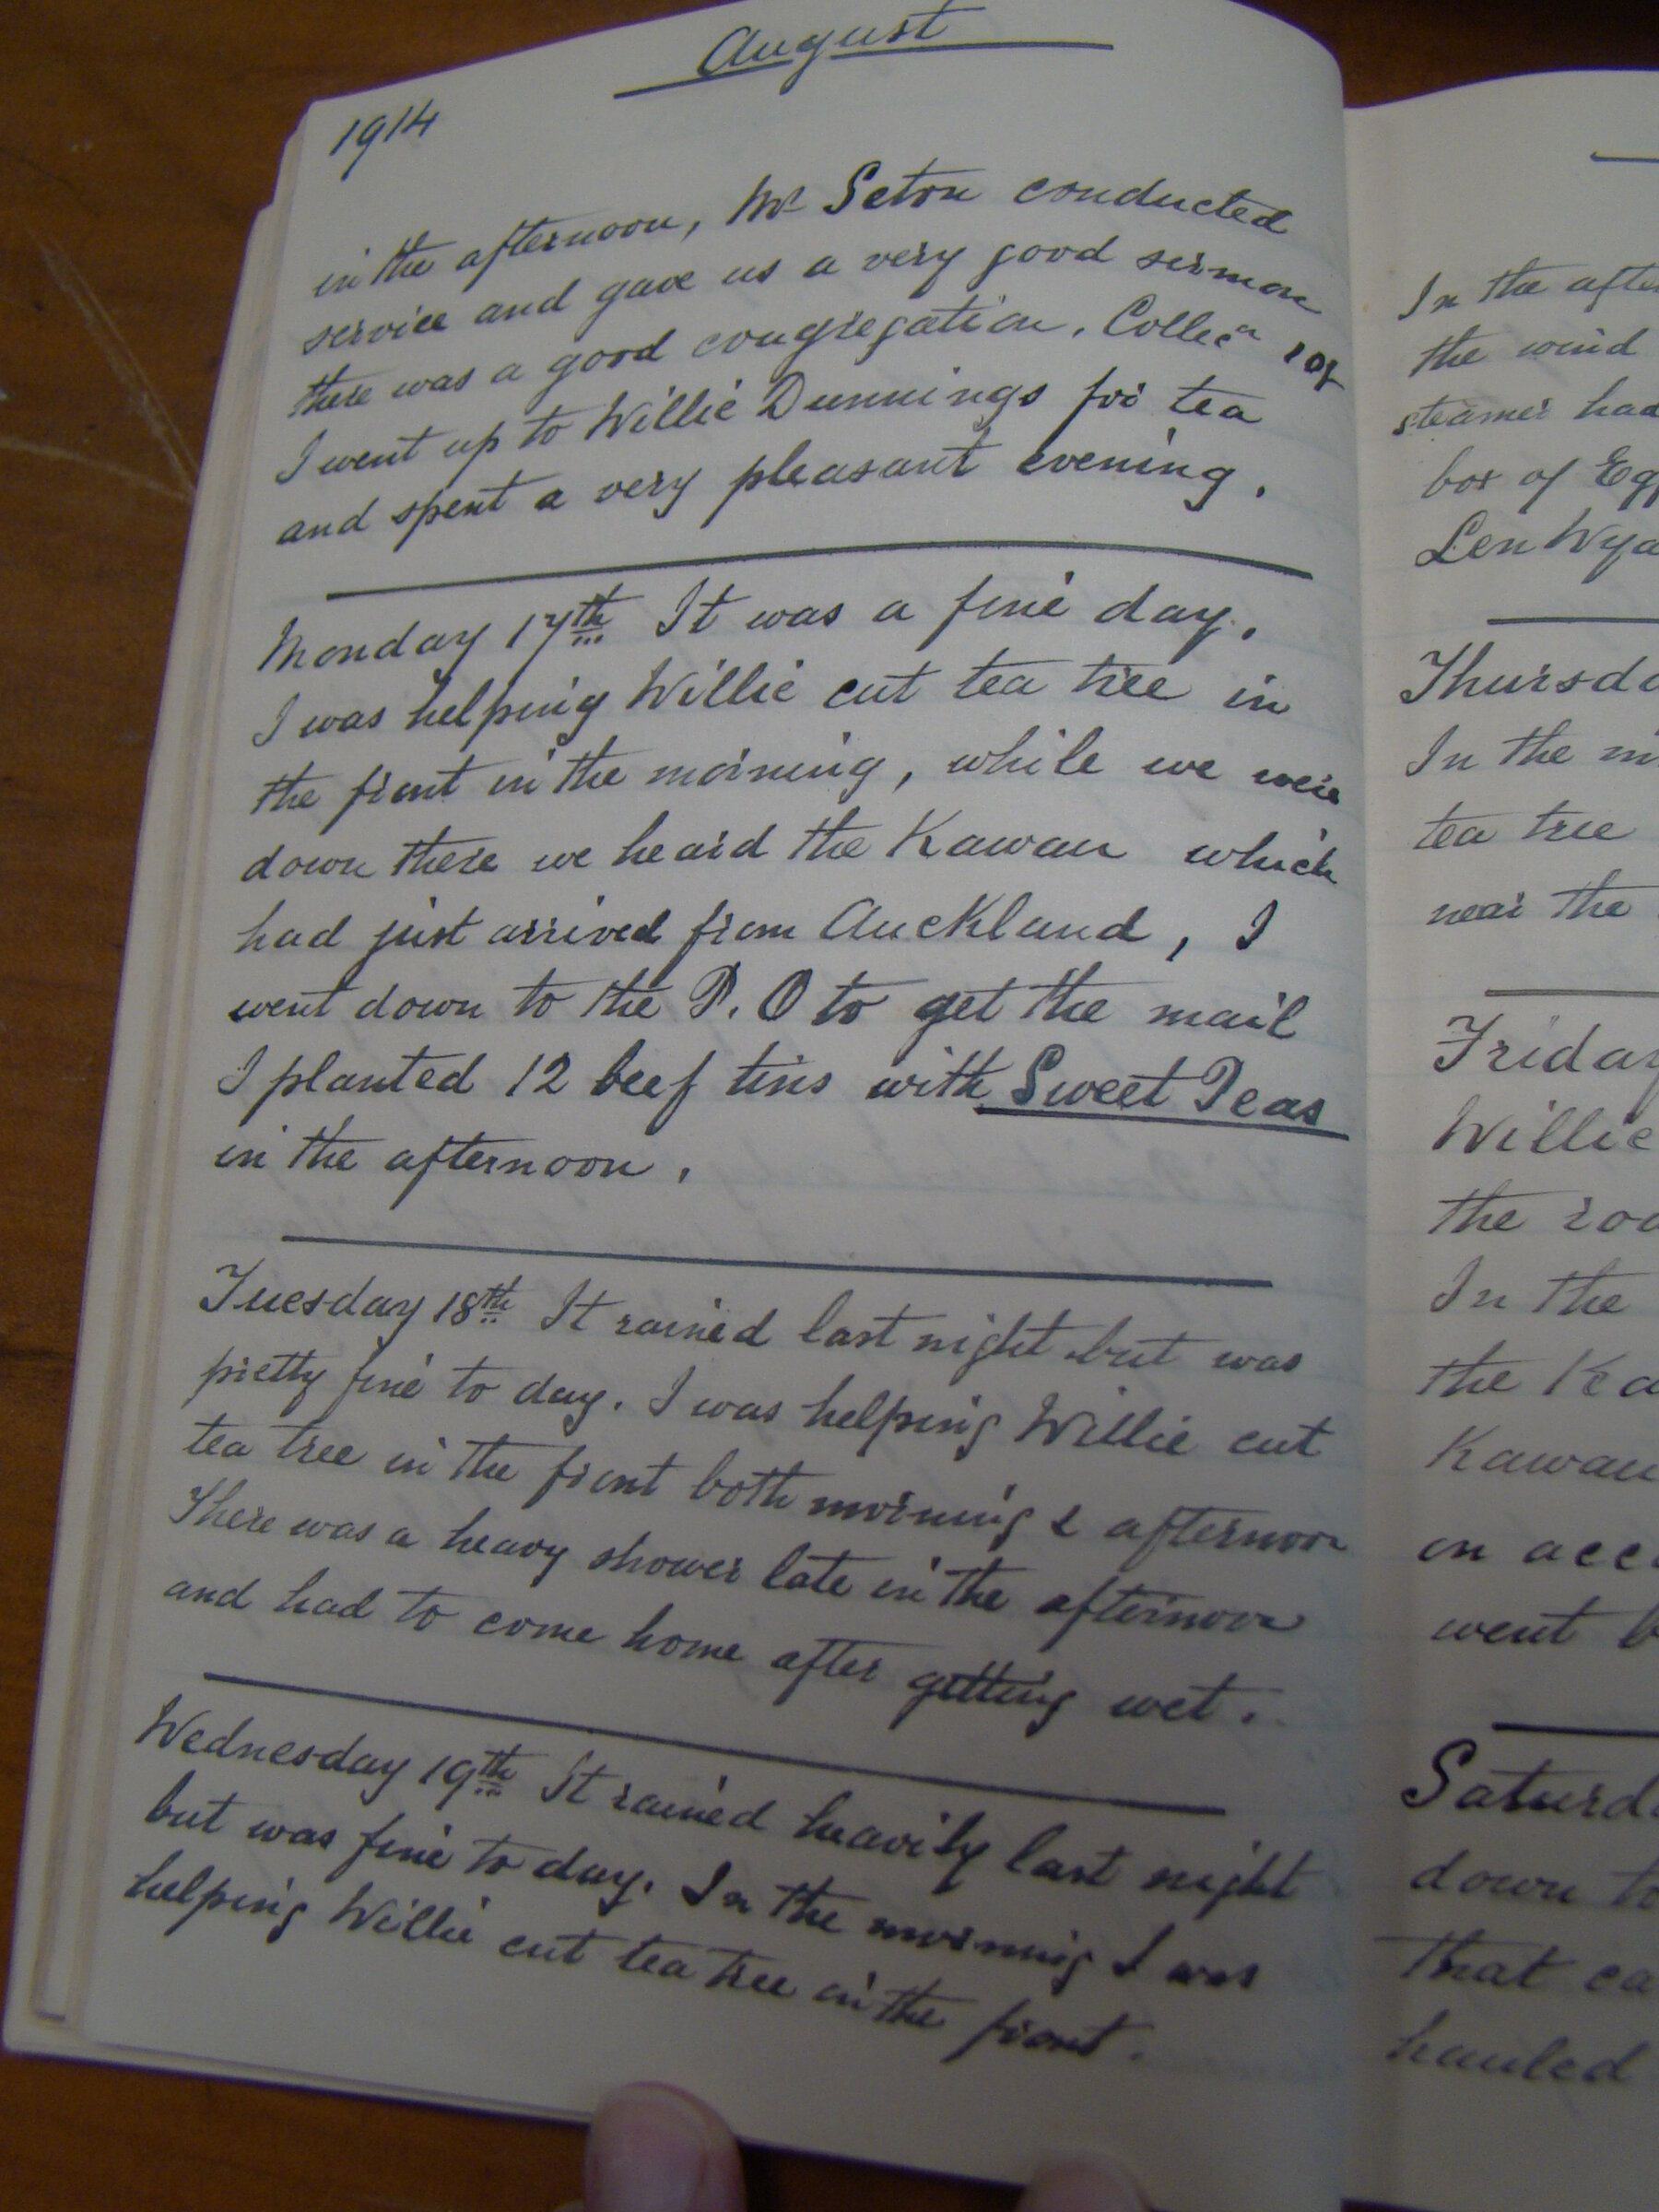 August
1914
in the afternoon, Mr Seton conducted
service and gave us a very good sermon
there was a good congregation. Collecn
I went up to Willie Dunnings for tea
and spent a very pleasant evening.
Monday 17th It was a fine day.
I was helping Willie cut tea tree in
the front in the morning, while we were
down there we heard the Kawau which
had just arrived from Auckland, I
went down to the P.O to get the mail
I planted 12 beef tins with Sweet Peas
in the afternoon.
Tuesday 18th It rained last night but was
pretty fine to day. I was helping Willie cut
tea tree in the front both morning & afternoon
There was a heavy shower late in the afternoon
and had to come home after getting wet.
Wednesday 19th It rained heavily last night
but was fine to day. In the morning I was
helping Willie cut tea tree in the front.
In the
the wind
steamer had
box of
Len
In the
tea tree
near the
Willie
the
In the
the
Kawau
on
went
down
that
hauled